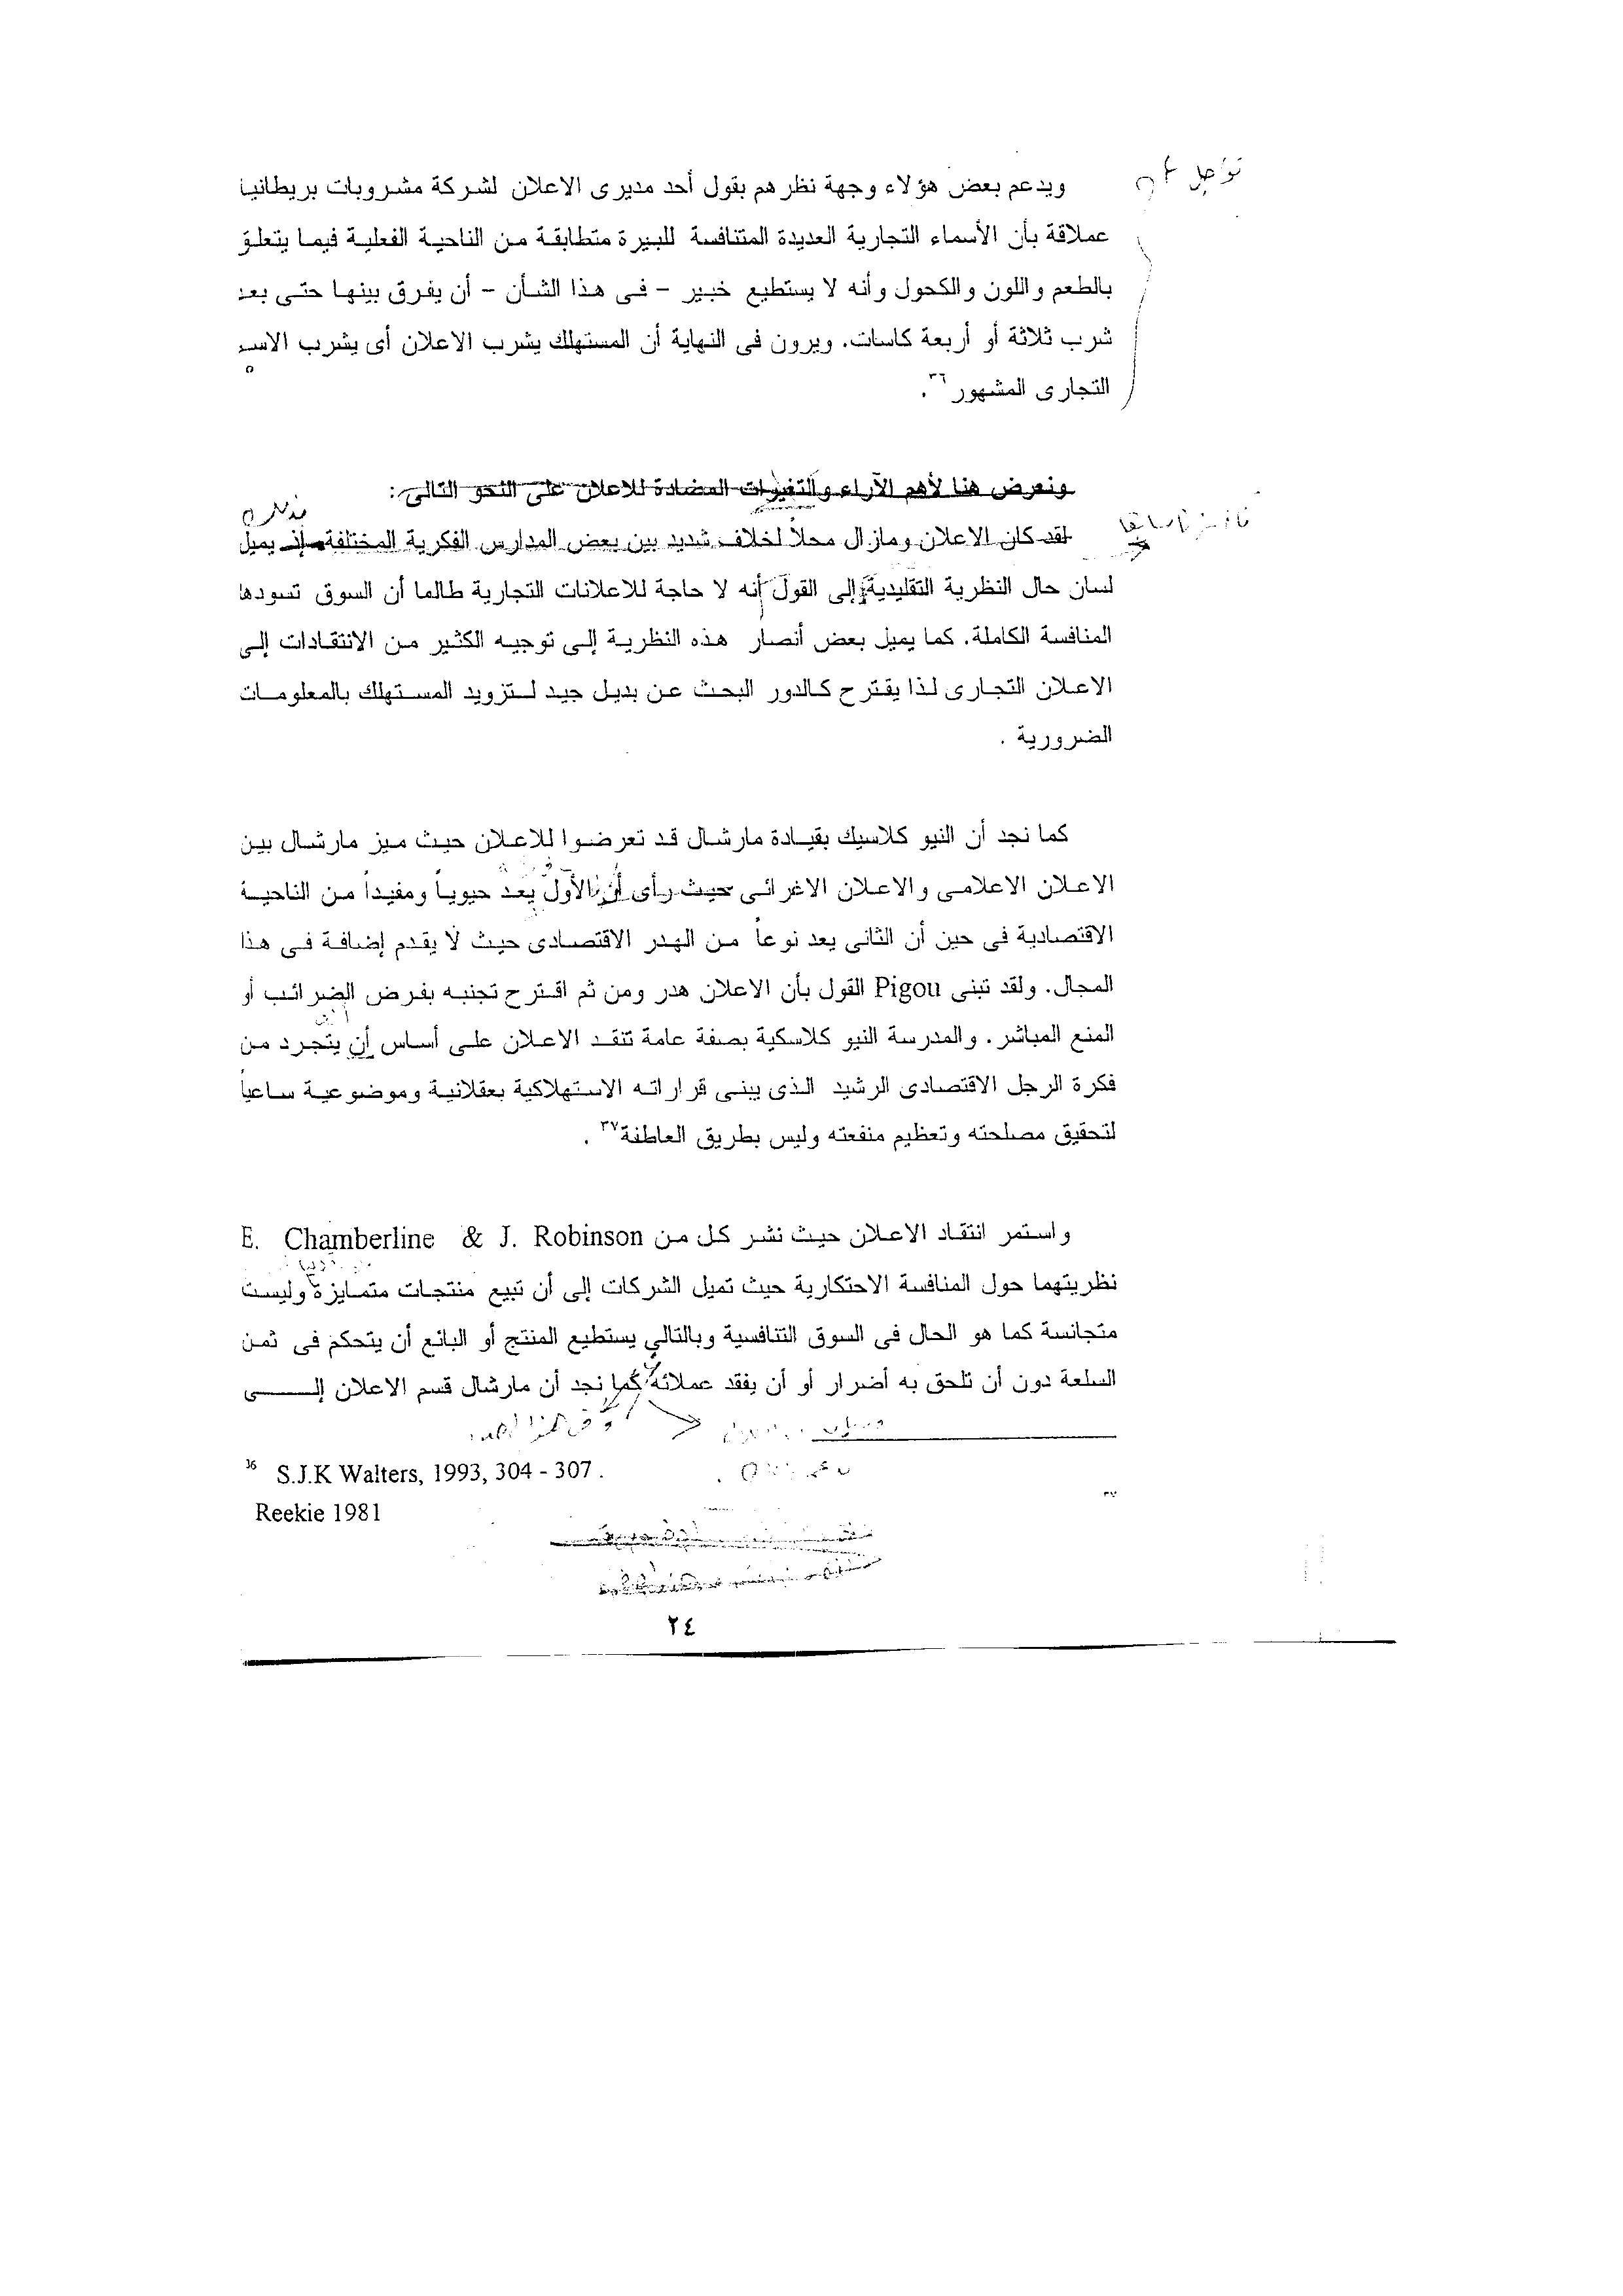 ويدعم بعض هؤلاء وجهة نظرهم بقول أحد مديرى الاعلان لشركة مشروبات بريطانيا
عملاقة بأن الأسماء التجارية العديدة المتنافسة للبيرة متطابقة من الناحية الفعلية فيما يتعلق
بالطعم واللون والكحول وأنه لا يستطيع خبير – فى هذا الشأن – أن يفرق بينها حتى بعد
شرب ثلاثة أو أربعة كاسات. ويرون فى النهاية أن المستهلك يشرب الاعلان أى يشرب الاسم
التجارى المشهور٣٦ .
ونعرض هنا لأهم الآراء والتغيرات المضادة للاعلان على النحو التالى :
لقد كان الاعلان ومازال محلاً لخلاف شديد بين بعض المدارس الفكرية المختلفة إذ يميل
لسان حال النظرية التقليدية إلى القول أنه لا حاجة للاعلانات التجارية طالما أن السوق تسودها
المنافسة الكاملة. كما يميل بعض أنصار هذه النظرية إلى توجيه الكثير من الانتقادات إلى
الاعلان التجارى لذا يقترح كالدور البحث عن بديل جيد لتزويد المستهلك بالمعلومات
الضرورية .
كما نجد أن النيو كلاسيك بقيادة مارشال قد تعرضوا للاعلان حيث ميز مارشال بين
الاعلان الاعلامى والاعلان الاغرائى حيث رأى أن الأول يعد حيوياً ومفيداً من الناحية
الاقتصادية فى حين أن الثانى يعد نوعاً من الهدر الاقتصادى حيث لا يقدم إضافة فى هذا
المجال. ولقد تبنى Pigou القول بأن الاعلان هدر ومن ثم اقترح تجنبه بفرض الضرائب أو
المنع المباشر. والمدرسة النيو كلاسكية بصفة عامة تنقد الاعلان على أساس أن يتجرد من
فكرة الرجل الاقتصادى الرشيد الذى يبنى قراراته الاستهلاكية بعقلانية وموضوعية ساعياً
لتحقيق مصلحته وتعظيم منفعته وليس بطريق العاطفة٣٧ .
واستمر انتقاد الاعلان حيث نشر كل من E. Chamberline & J. Robinson
نظريتهما حول المنافسة الاحتكارية حيث تميل الشركات إلى أن تبيع منتجات متمايزة وليست
متجانسة كما هو الحال فى السوق التنافسية وبالتالى يستطيع المنتج أو البائع أن يتحكم فى ثمن
السلعة دون أن تلحق به أضرار أو أن يفقد عملائه كما نجد أن مارشال قسم الاعلان إلى
36 S.J.K Walters, 1993, 304 - 307 .
٣٧
Reekie 1981
٢٤